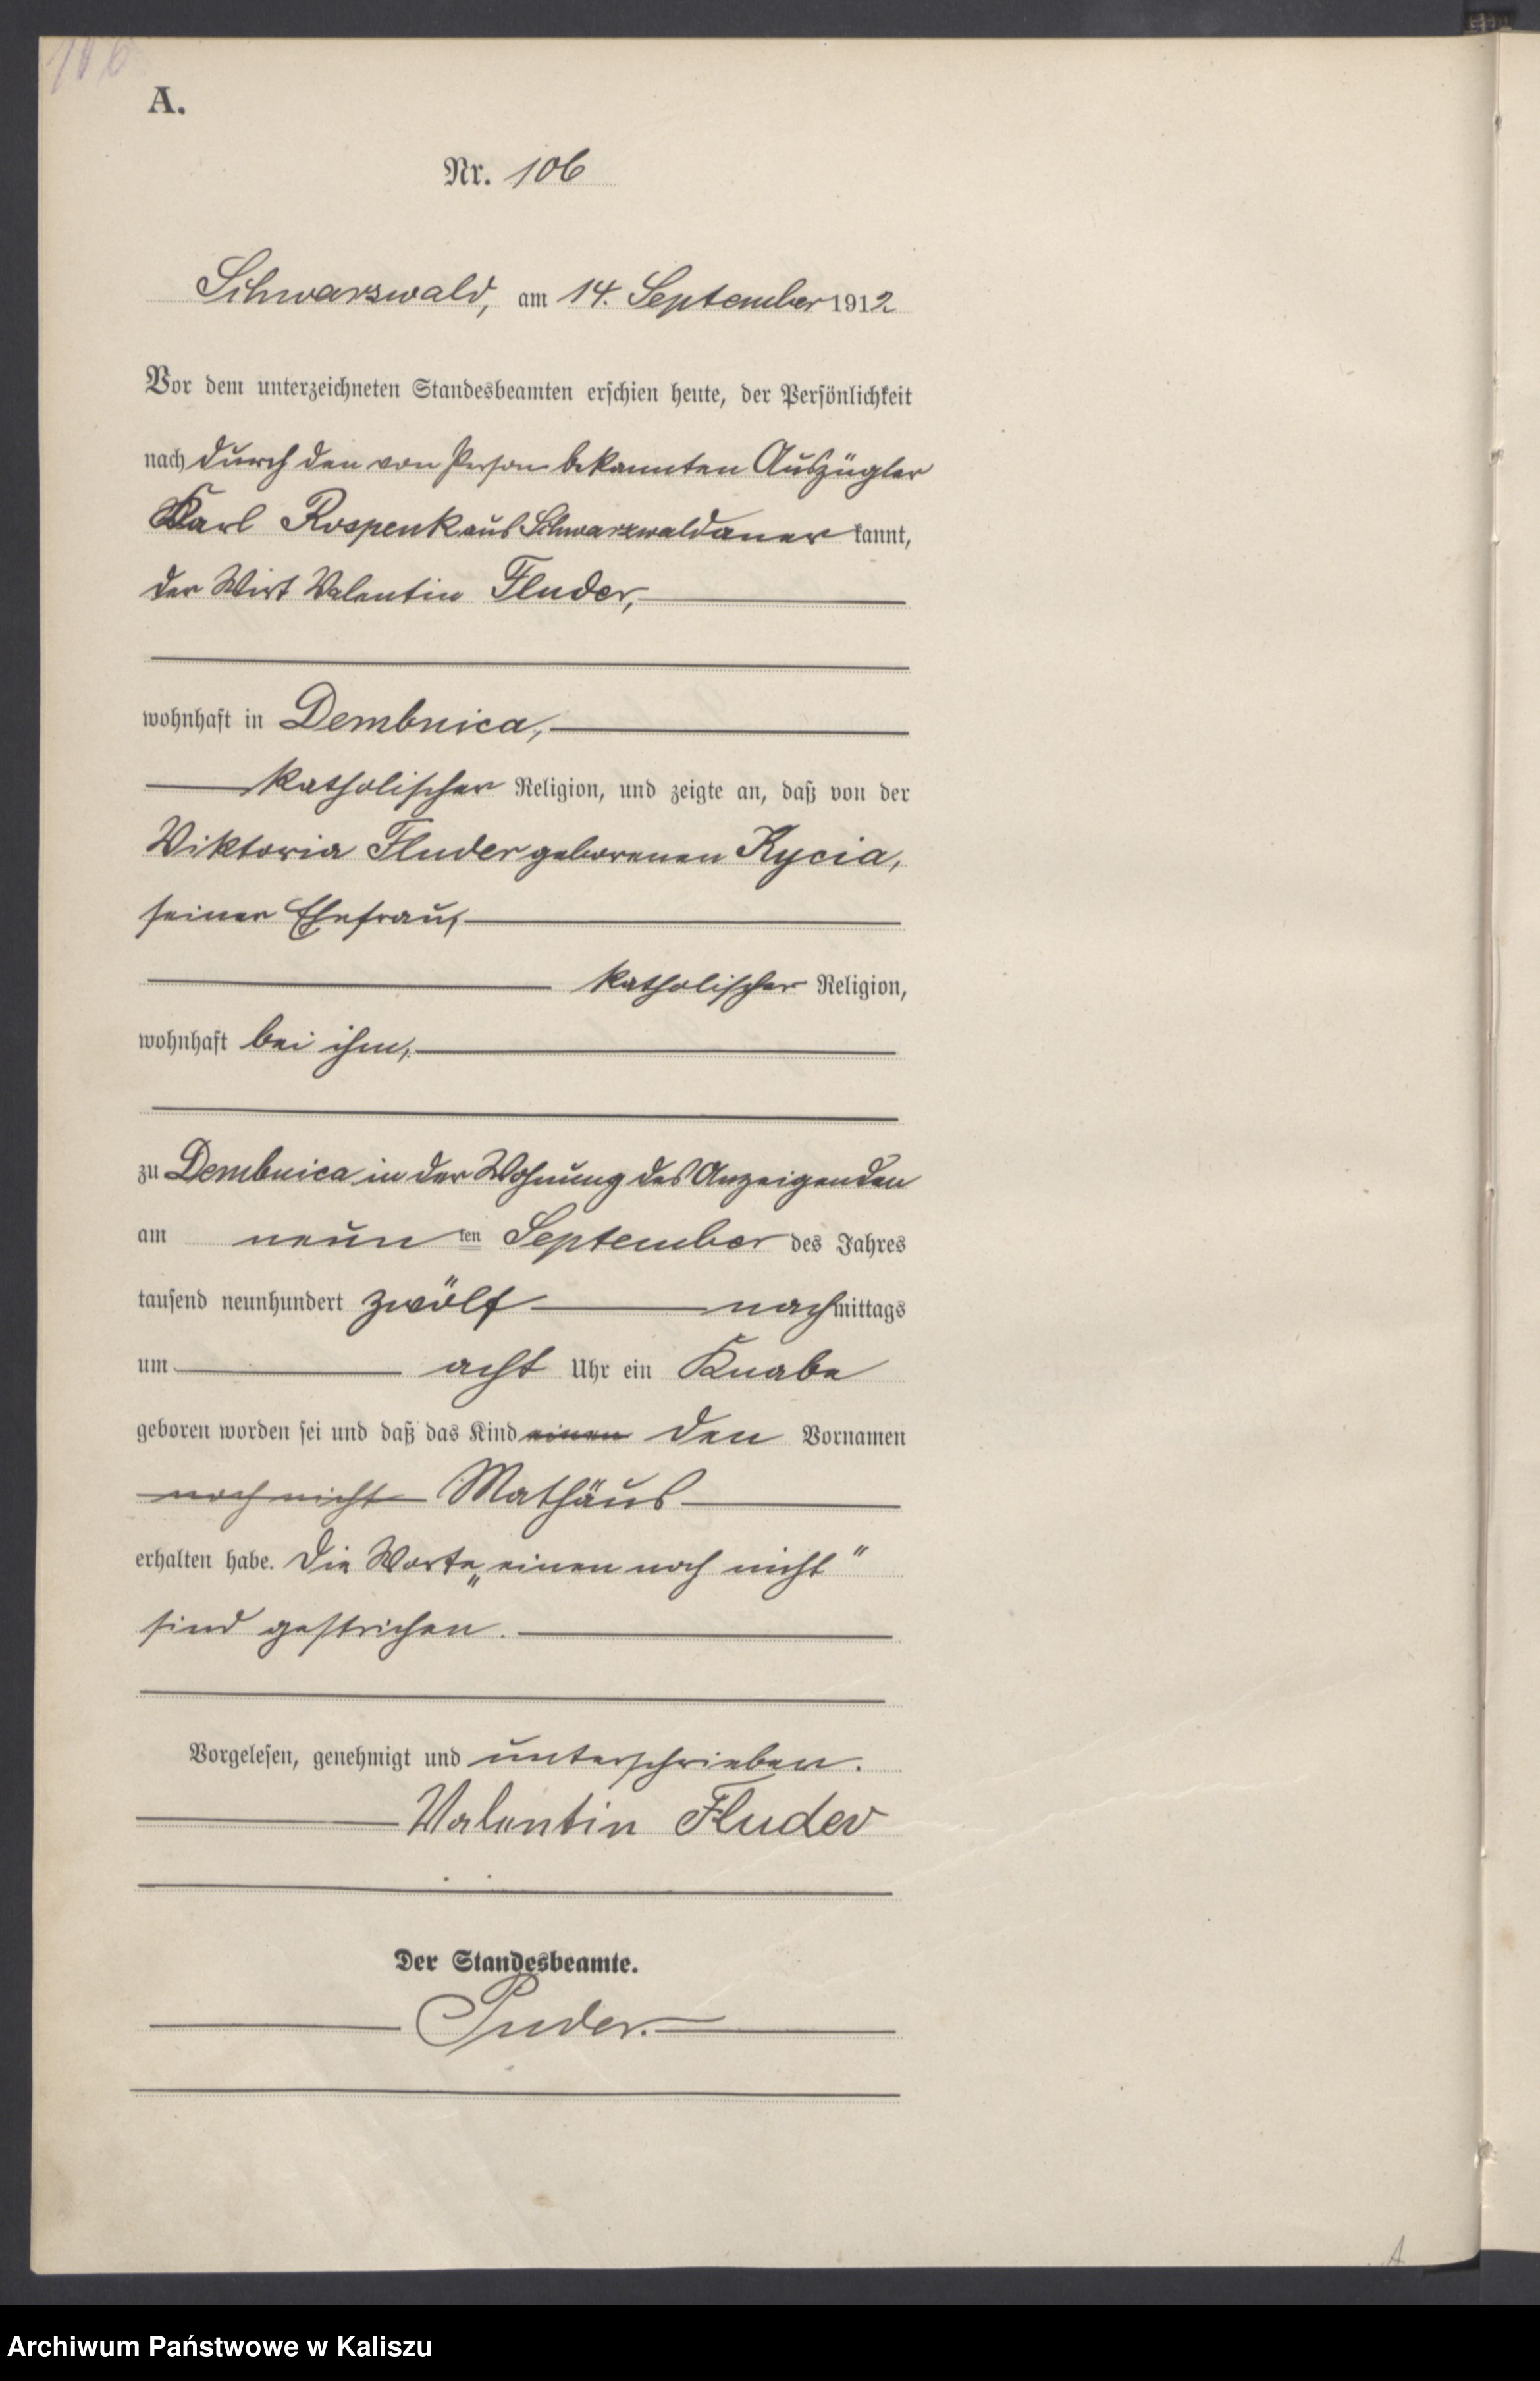 106
A.
Nr. 106
Schwarzwald, am 14. September 1912
Vor dem unterzeichneten Standesbeamten erschien heute, der Persönlichkeit
nach durch den von Person bekannten Auszügler
Karl Rospenk aus Schwarzwald aner kannt,
der Wirt Valentin Fluder,
wohnhaft in Dembnica,
katholischer Religion, und zeigte an, daß von der
Viktoria Fluder geborenen Kycia,
seiner Ehefrau,
katholischer Religion,
wohnhaft bei ihm,
zu Dembnica in der Wohnung des Anzeigenden
am neun ten September des Jahres
tausend neunhundert zwölf nachmittags
um acht Uhr ein Knabe
geboren worden sei und daß das Kind einen den Vornamen
noch nicht Mathäus
erhalten habe. Die Worte „einen noch nicht"
sind gestrichen.
Vorgelesen, genehmigt und unterschrieben.
Valentin Fluder
Der Standesbeamte.
Puder.
A
Archiwum Państwowe w Kaliszu